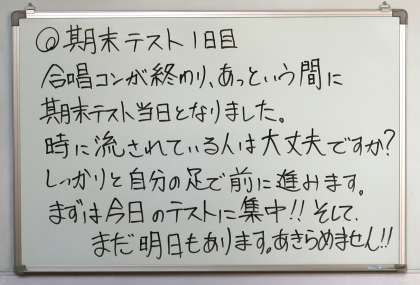 ◎期末テスト1日目
合唱コンが終わり、あっという間に
期末テスト当日となりました。
時に流されている人は大丈夫ですか?
しっかりと自分の足で前に進みます。
まずは今日のテストに集中!! そして、
まだ明日もあります。あきらめません!!